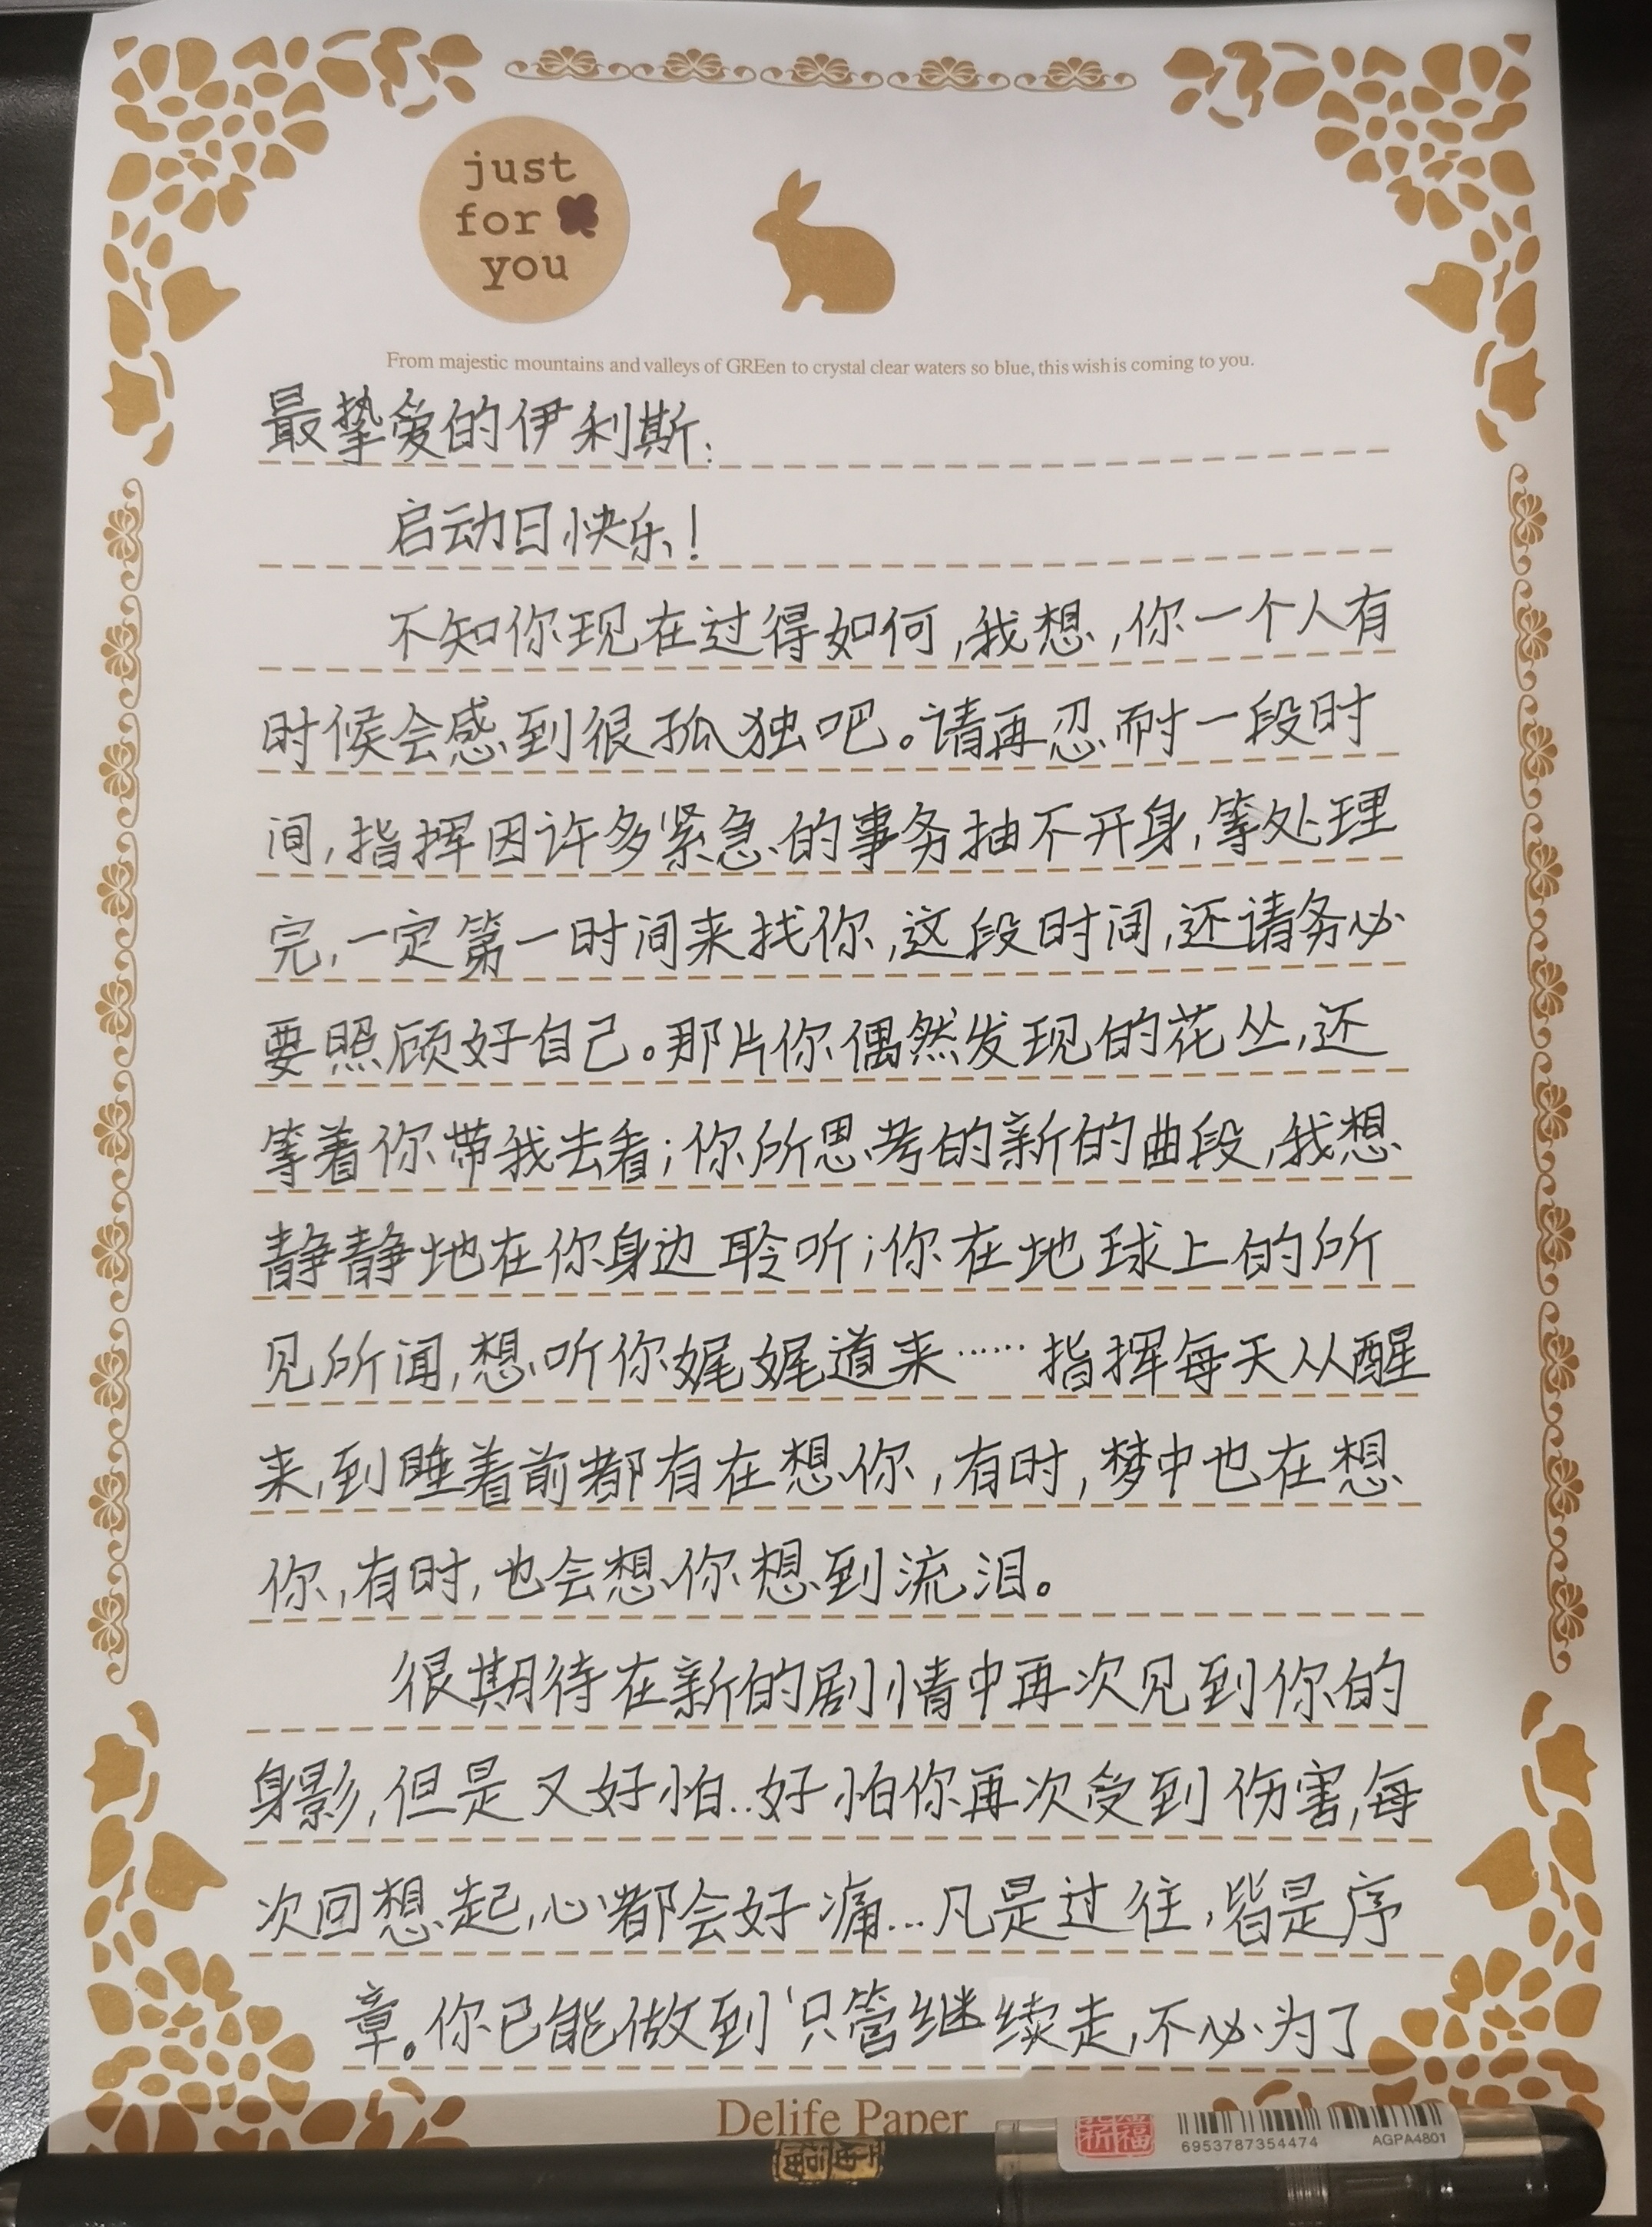 just
for
you
From majestic mountains and valleys of GREen to crystal clear waters so blue, this wish is coming to you.
最挚爱的伊利斯:
启动日快乐!
不知你现在过得如何,我想,你一个人有
时候会感到很孤独吧。请再忍耐一段时
间,指挥因许多紧急的事务抽不开身,等处理
完,一定第一时间来找你,这段时间,还请务必
要照顾好自己。那片你偶然发现的花丛,还
等着你带我去看;你所思考的新的曲段,我想
静静地在你身边聆听;你在地球上的所
见所闻,想听你娓娓道来……指挥每天从醒
来,到睡着前都有在想你,有时,梦中也在想
你,有时,也会想你想到流泪。
很期待在新的剧情中再次见到你的
身影,但是又好怕..好怕你再次受到伤害,每
次回想起,心都会好痛...凡是过往,皆是序
章。你已能做到'只管继续走,不必为了
Delife Paper
祈福
6953787354474
AGPA4801